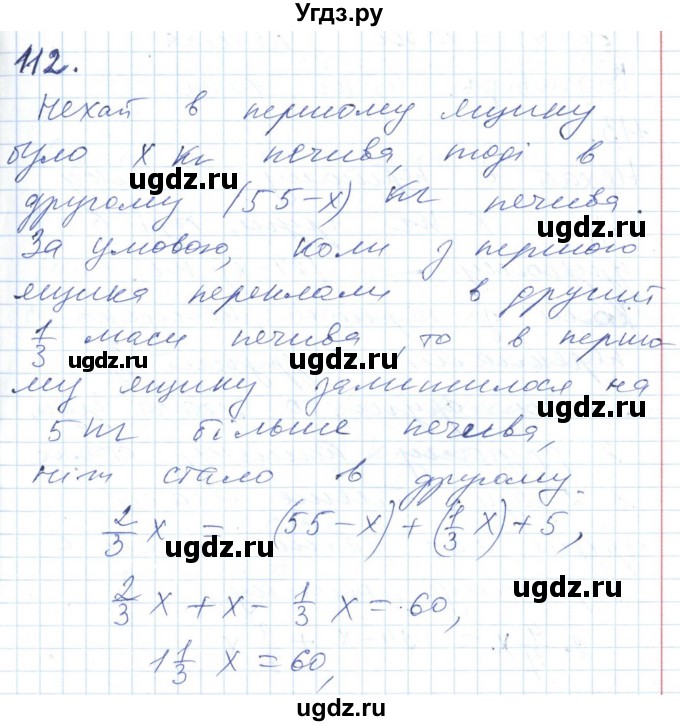 Угдз.ру
112.
Нехай в першому ящику
було x кг печива, тоді в
другому (55-x) кг печива.
За умовою, коли з першого
ящика переклали в другий
1/3 маси печива, то в першо
му ящику залишилося на
5 кг більше печива,
ніж стало в другому.
2/3 x = (55-x)+(1/3 x)+5,
2/3 x + x - 1/3 x = 60,
1 1/3 x = 60,
ugdz.ru
ugdz.ru
ugdz.ru
ugdz.ru
ugdz.ru
ugdz.ru
ugdz.ru
ugdz.ru
ugdz.ru
©ugdz.ru